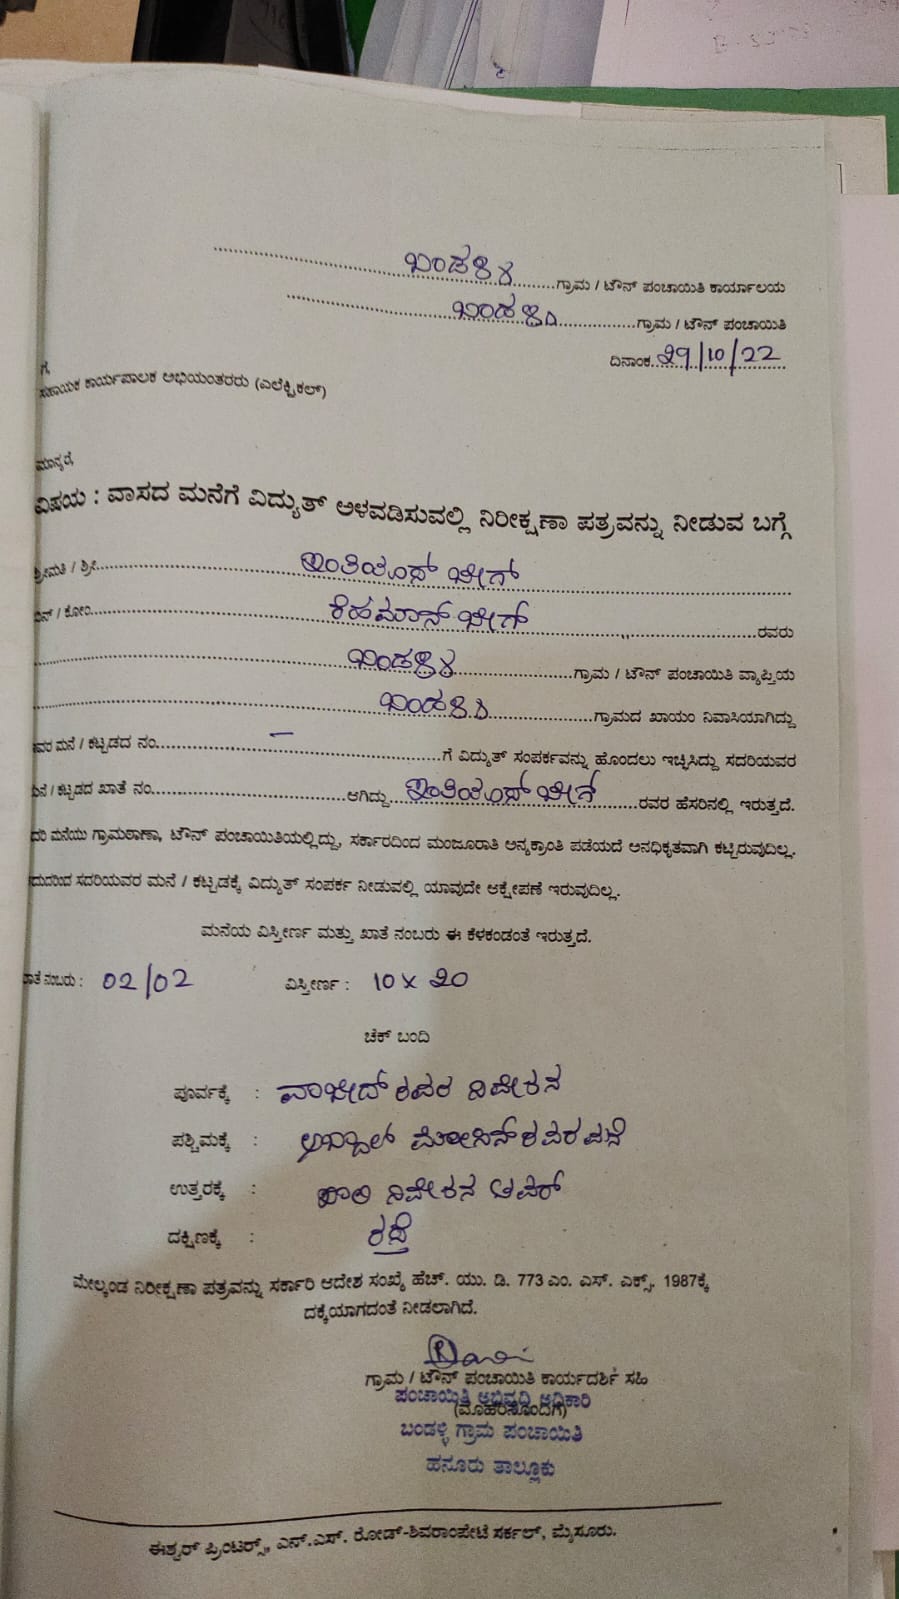 ಬಂಡಳ್ಳಿ ಗ್ರಾಮ / ಟೌನ್ ಪಂಚಾಯಿತಿ ಕಾರ್ಯಾಲಯ
ಬಂಡಳ್ಳಿ ಗ್ರಾಮ / ಟೌನ್ ಪಂಚಾಯಿತಿ
ದಿನಾಂಕ 29/10/22
ಗೆ,
ಸಹಾಯಕ ಕಾರ್ಯಪಾಲಕ ಅಭಿಯಂತರರು (ಎಲೆಕ್ಟ್ರಿಕಲ್)
ಮಾನ್ಯರೆ,
ವಿಷಯ : ವಾಸದ ಮನೆಗೆ ವಿದ್ಯುತ್ ಅಳವಡಿಸುವಲ್ಲಿ ನಿರೀಕ್ಷಣಾ ಪತ್ರವನ್ನು ನೀಡುವ ಬಗ್ಗೆ
ಶ್ರೀಮತಿ / ಶ್ರೀ ಬೇಗ್
ಬಿನ್ / ಕೋಂ ರೆಹಮಾನ್ ಬೇಗ್ ರವರು
ಬಂಡಳ್ಳಿ ಗ್ರಾಮ / ಟೌನ್ ಪಂಚಾಯಿತಿ ವ್ಯಾಪ್ತಿಯ
ಬಂಡಳ್ಳಿ ಗ್ರಾಮದ ಖಾಯಂ ನಿವಾಸಿಯಾಗಿದ್ದು
ಮನೆ / ಕಟ್ಟಡದ ನಂ. – ಗೆ ವಿದ್ಯುತ್ ಸಂಪರ್ಕವನ್ನು ಹೊಂದಲು ಇಚ್ಛಿಸಿದ್ದು ಸದರಿಯವರ
ಮನೆ / ಕಟ್ಟಡದ ಖಾತೆ ನಂ. ಆಗಿದ್ದು ಬೇಗ್ ರವರ ಹೆಸರಿನಲ್ಲಿ ಇರುತ್ತದೆ.
ಮನೆಯು ಗ್ರಾಮಠಾಣಾ, ಟೌನ್ ಪಂಚಾಯಿತಿಯಲ್ಲಿದ್ದು, ಸರ್ಕಾರದಿಂದ ಮಂಜೂರಾತಿ ಅನ್ಯಕ್ರಾಂತಿ ಪಡೆಯದೆ ಅನಧಿಕೃತವಾಗಿ ಕಟ್ಟಿರುವುದಿಲ್ಲ.
ಸದರಿಯವರ ಮನೆ / ಕಟ್ಟಡಕ್ಕೆ ವಿದ್ಯುತ್ ಸಂಪರ್ಕ ನೀಡುವಲ್ಲಿ ಯಾವುದೇ ಆಕ್ಷೇಪಣೆ ಇರುವುದಿಲ್ಲ.
ಮನೆಯ ವಿಸ್ತೀರ್ಣ ಮತ್ತು ಖಾತೆ ನಂಬರು ಈ ಕೆಳಕಂಡಂತೆ ಇರುತ್ತದೆ.
ಖಾತೆ ನಂಬರು : 02/02 ವಿಸ್ತೀರ್ಣ : 10 x 20
ಚೆಕ್ ಬಂದಿ
ಪೂರ್ವಕ್ಕೆ : ರವರ ನಿವೇಶನ
ಪಶ್ಚಿಮಕ್ಕೆ : ರವರ ಮನೆ
ಉತ್ತರಕ್ಕೆ : ಖಾಲಿ ನಿವೇಶನ
ದಕ್ಷಿಣಕ್ಕೆ : ರಸ್ತೆ
ಮೇಲ್ಕಂಡ ನಿರೀಕ್ಷಣಾ ಪತ್ರವನ್ನು ಸರ್ಕಾರಿ ಆದೇಶ ಸಂಖ್ಯೆ ಹೆಚ್. ಯು. ಡಿ. 773 ಎಂ. ಎಸ್. ಎಕ್ಸ್. 1987ಕ್ಕೆ
ದಕ್ಕೆಯಾಗದಂತೆ ನೀಡಲಾಗಿದೆ.
ಗ್ರಾಮ / ಟೌನ್ ಪಂಚಾಯಿತಿ ಕಾರ್ಯದರ್ಶಿ ಸಹಿ
ಪಂಚಾಯಿತಿ ಅಭಿವೃದ್ಧಿ ಅಧಿಕಾರಿ
(ಮೊಹರಿನೊಂದಿಗೆ)
ಬಂಡಳ್ಳಿ ಗ್ರಾಮ ಪಂಚಾಯಿತಿ
ಹನೂರು ತಾಲ್ಲೂಕು
ಈಶ್ವರ್ ಪ್ರಿಂಟರ್ಸ್, ಎನ್.ಎಸ್. ರೋಡ್-ಶಿವರಾಂಪೇಟೆ ಸರ್ಕಲ್, ಮೈಸೂರು.